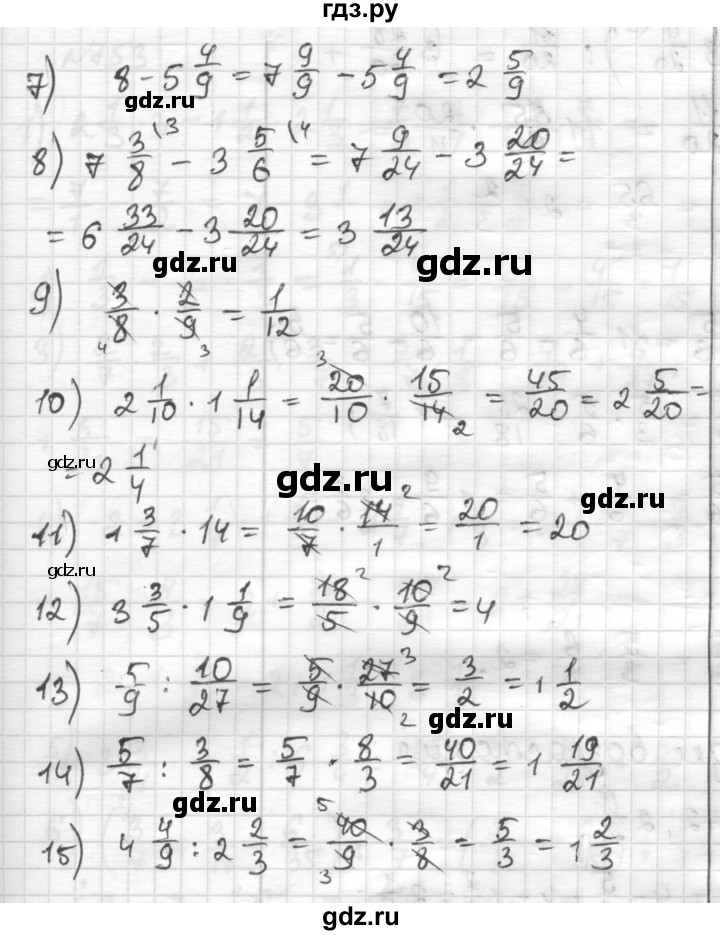 гдз.ру
7) 8 - 5 4/9 = 7 9/9 - 5 4/9 = 2 5/9
gdz.ru
8) 7 3/8 \3 - 3 5/6 \4 = 7 9/24 - 3 20/24 =
= 6 33/24 - 3 20/24 = 3 13/24
gdz.ru
gdz.ru
9) 3/8 · 2/9 = 1/12
4 3
10) 2 1/10 · 1 1/14 = 3 20/10 · 15/14 2 = 45/20 = 2 5/20 =
= 2 1/4
gdz.ru
gdz.ru
gdz.ru
11) 1 3/7 · 14 = 10/7 · 14/1 2 = 20/1 = 20
gdz.ru
12) 3 3/5 · 1 1/9 = 18/5 2 · 10/9 2 = 4
13) 5/9 : 10/27 = 5/9 · 27/10 3 2 = 3/2 = 1 1/2
gdz.ru
14) 5/7 : 3/8 = 5/7 · 8/3 = 40/21 = 1 19/21
gdz.ru
15) 4 4/9 : 2 2/3 = 5 40/9 3 · 3/8 = 5/3 = 1 2/3
gdz.ru